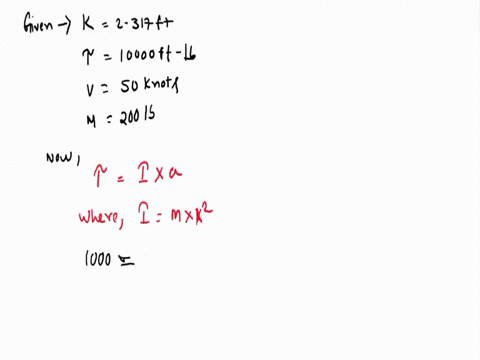 Given → K = 2.317 ft
τ = 10000 ft-lb
V = 50 Knots
M = 200 lb
Now,
τ = I × a
where, I = m × K²
1000 =